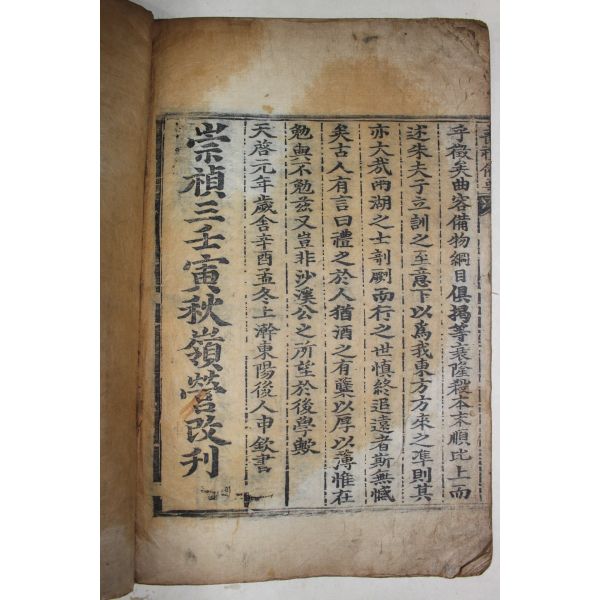 乎徵矣曲容備物綱目俱揭等衰隆殺本末順比上而
述朱夫子立訓之至意下以爲我東方方來之準則其
亦大哉兩湖之士剞劂而行之世愼終追遠者斯無憾
矣古人有言曰禮之於人猶酒之有糵以厚以薄惟在
勉與不勉茲又豈非沙溪公之所望於後學歟
天啓元年歲舍辛酉孟冬上澣東陽後人申欽書
崇禎三壬寅秋嶺營改刊